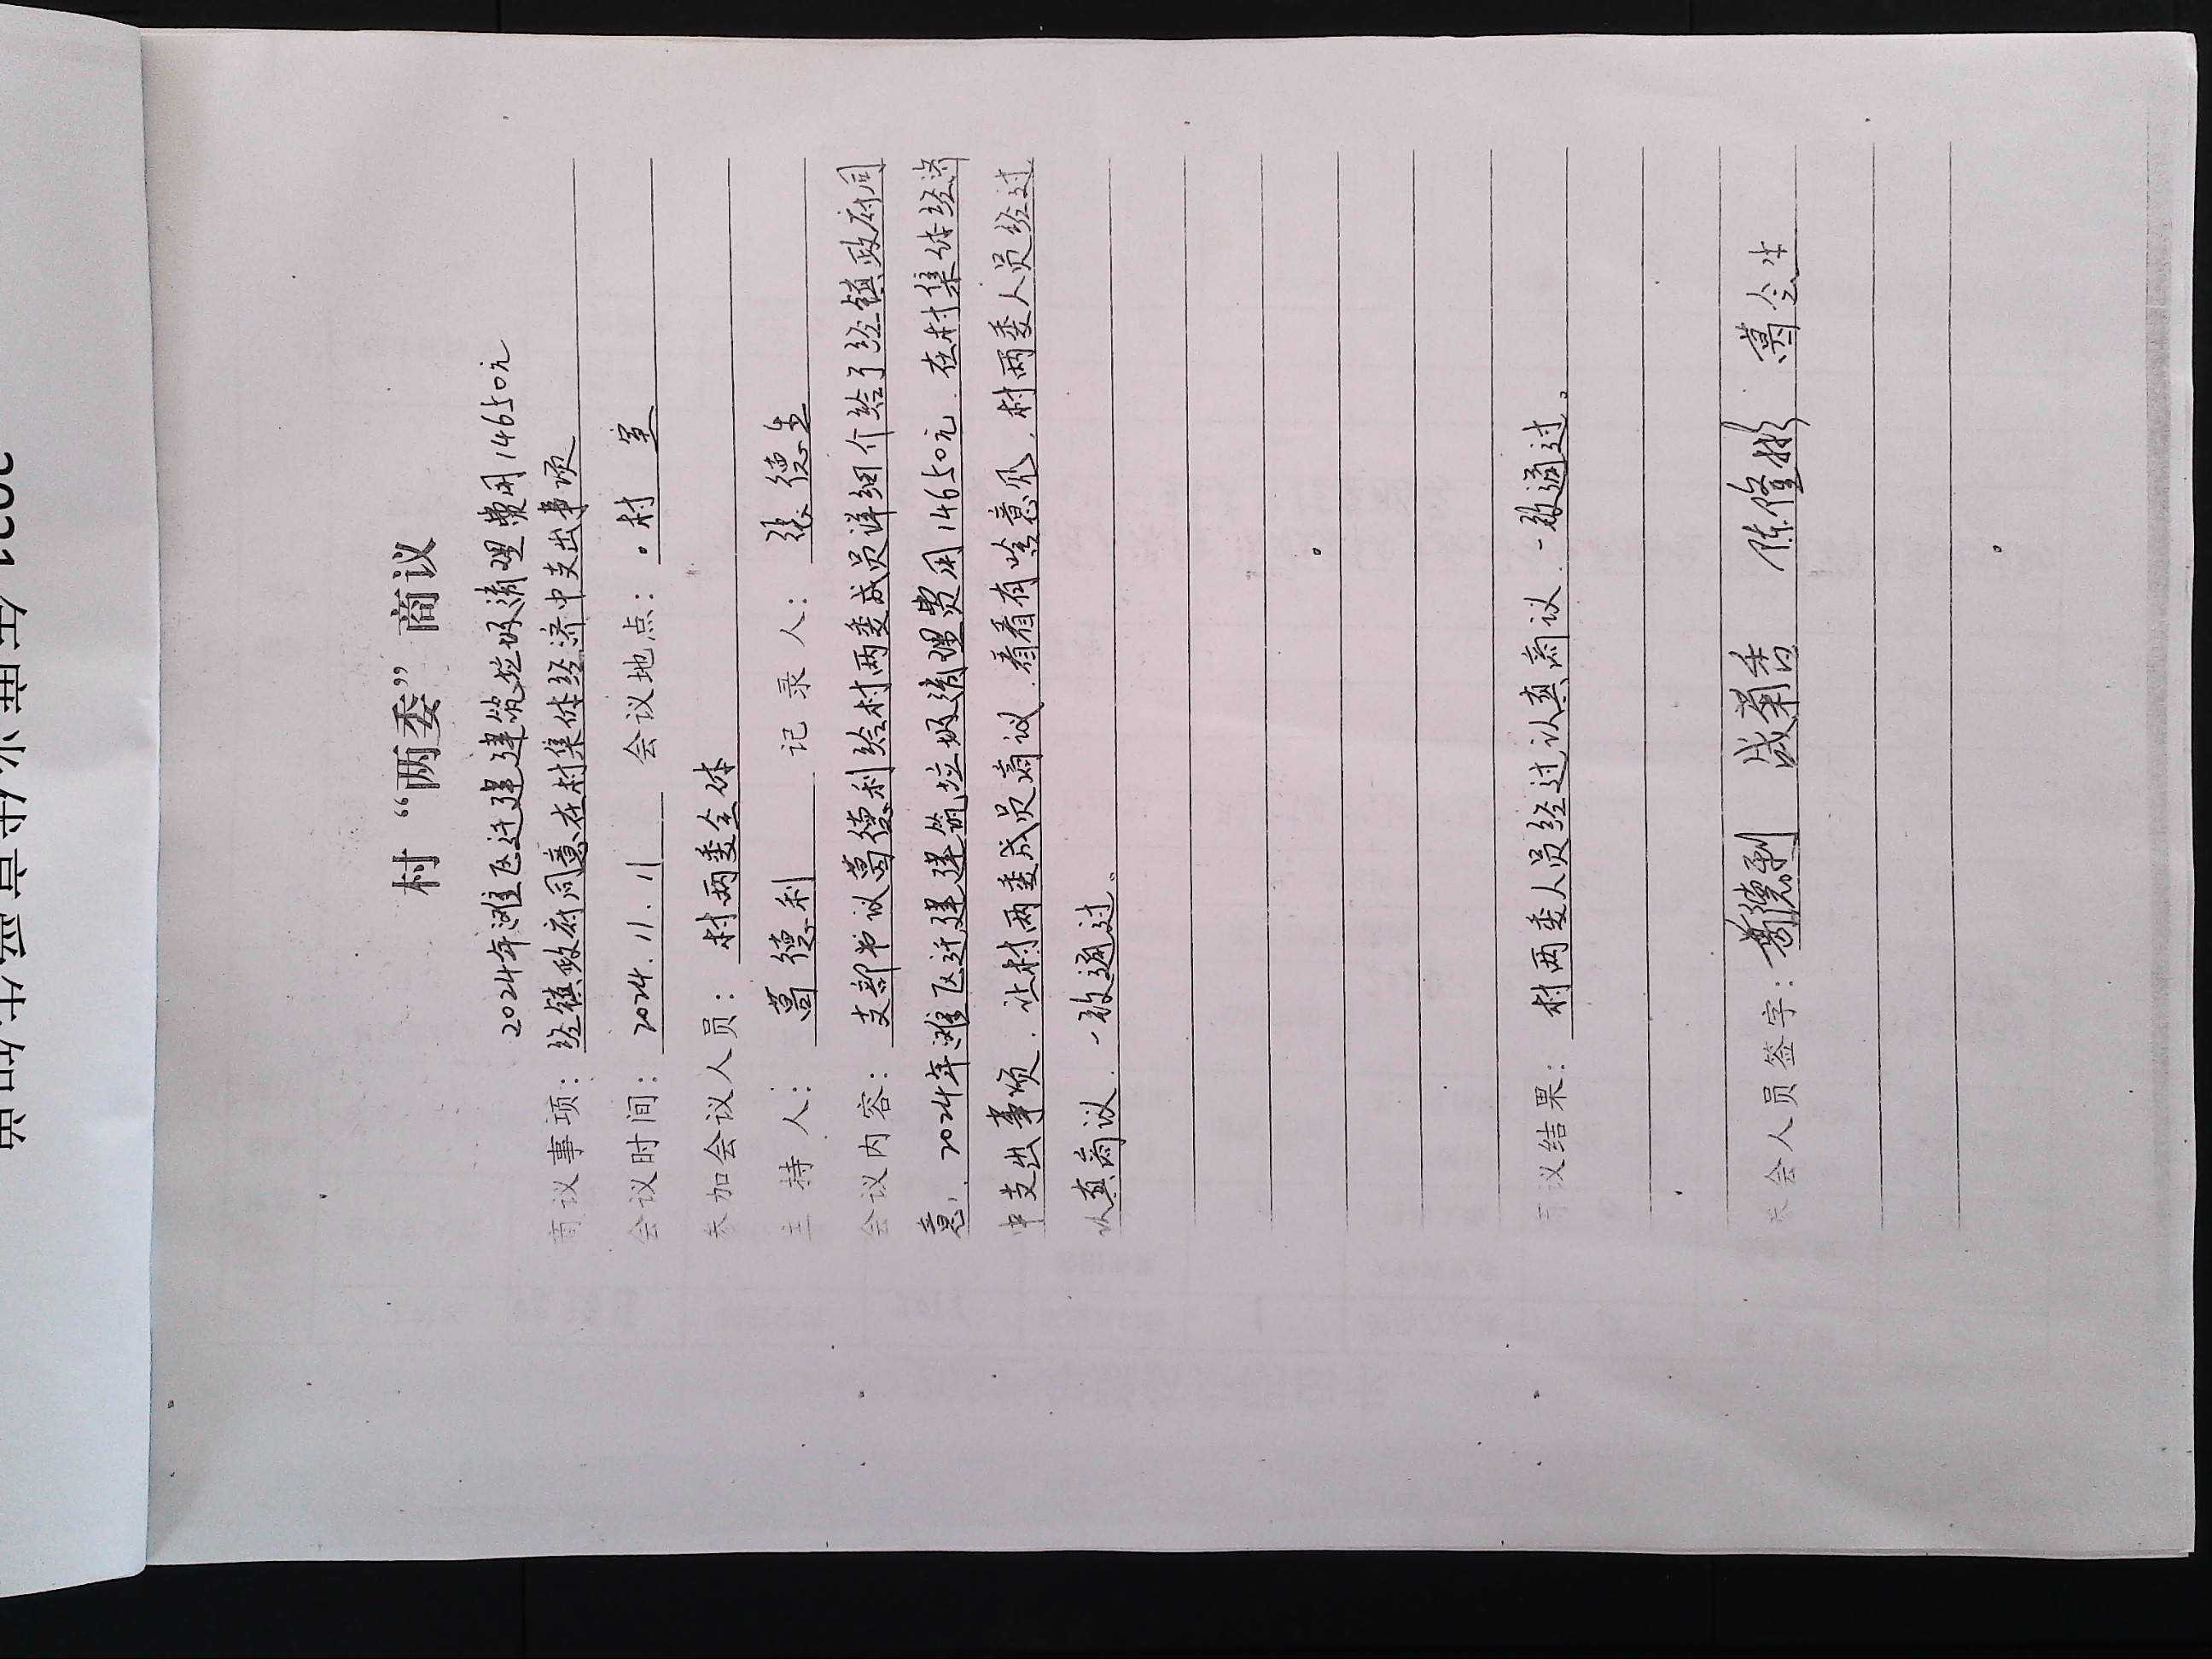 村“两委”商议
2024年滩区迁建建筑垃圾清理费用14650元
商议事项：经镇政府同意在村集体经济中支出事项
会议时间：2024.11.11 会议地点：村室
参加会议人员：村两委全体
主持人：葛德利 记录人：张德生
会议内容：支部书议葛德利给村两委成员详细介绍了经镇政府同
意，2024年滩区迁建建筑垃圾清理费用14650元．在村集体经济
中支出事项．让村两委成员商议．看看有啥意见．村两委人员经过
认真商议．一致通过。
商议结果：村两委人员经过认真商议．一致通过。
会人员签字：葛德利 成菊香 陈修彬 葛